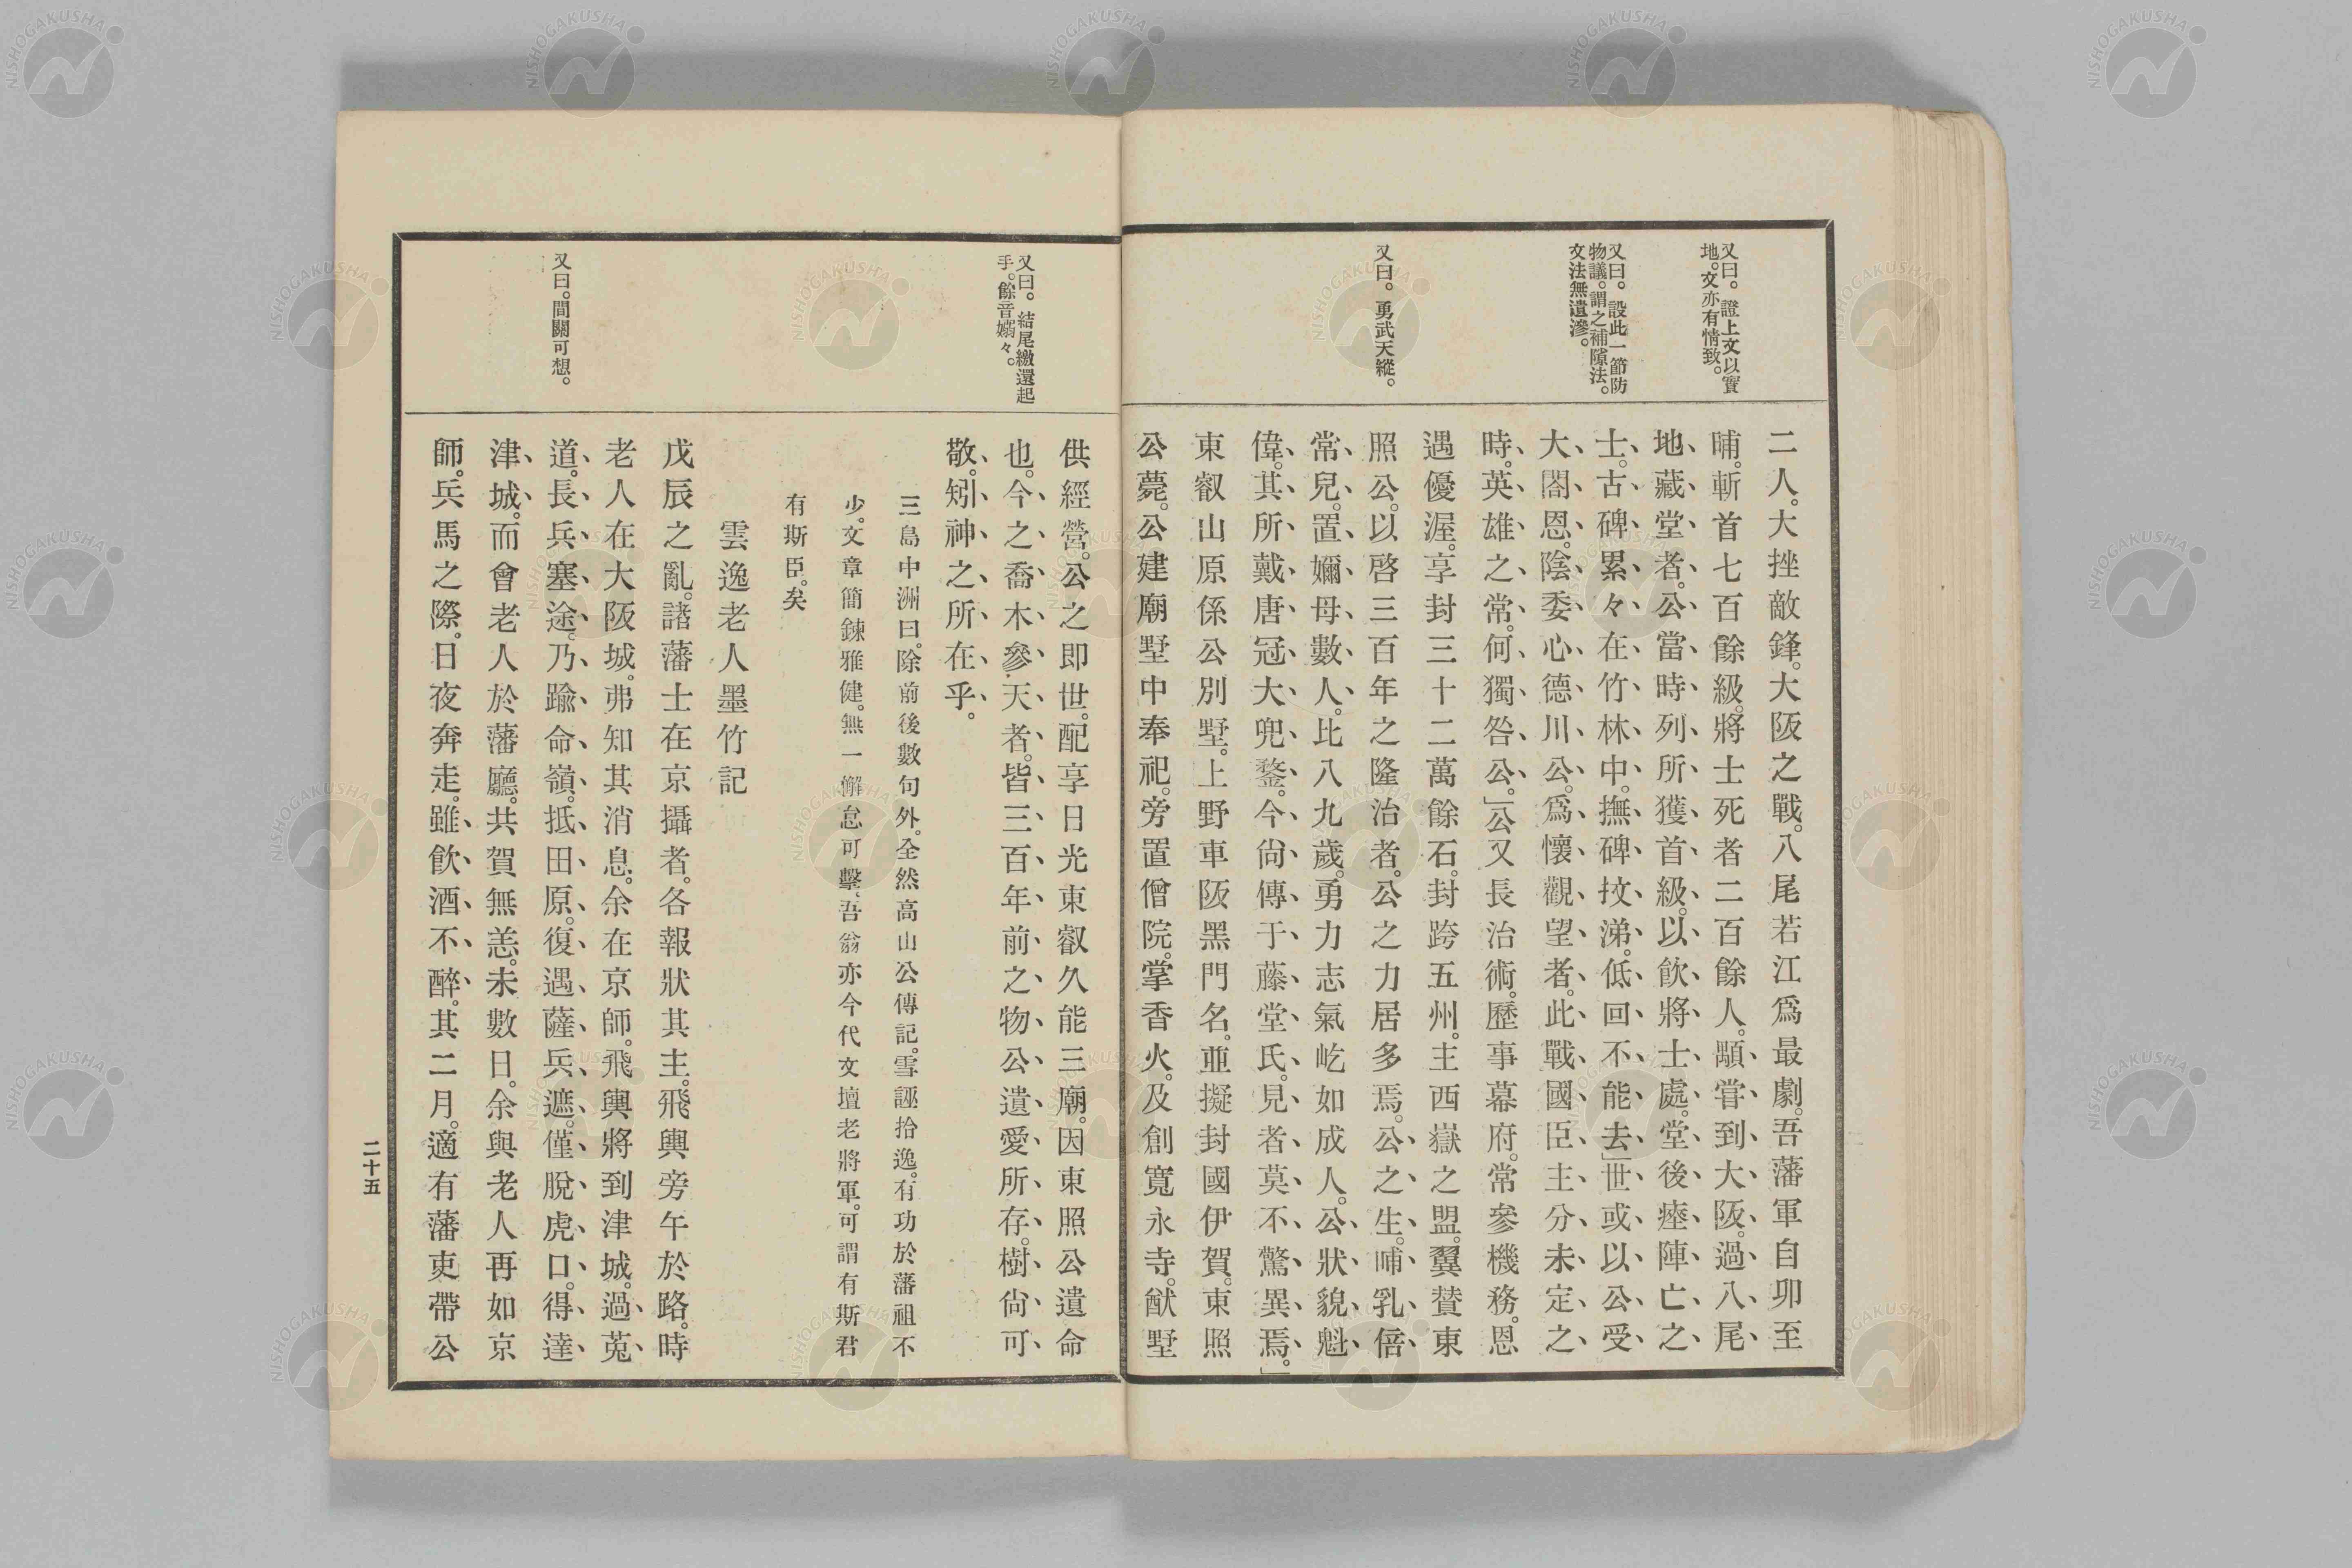 又曰。證上文以實
地。文亦有情致。
又曰。設此一節防
物議。謂之補隙法。
文法無遺滲。
又曰。勇武天縱。
二人。大挫敵鋒。大阪之戰。八尾若江爲最劇。吾藩軍自卯至
晡。斬首七百餘級。將士死者二百餘人。顒嘗到大阪。過八尾
地藏堂者。公當時列所獲首級。以飮將士處。堂後瘞陣亡之
士。古碑累々在竹林中。撫碑抆涕。低回不能去」世或以公受
大閤恩。陰委心德川公。爲懷觀望者。此戰國臣主分未定之
時。英雄之常。何獨咎公。」公又長治術。歷事幕府。常參機務。恩
遇優渥。享封三十二萬餘石。封跨五州。主西嶽之盟。翼賛東
照公。以啓三百年之隆治者。公之力居多焉。公之生。哺乳倍
常兒。置嬭母數人。比八九歲。勇力志氣屹如成人。公狀貌魁
偉。其所戴唐冠大兜鍪。今尙傳于藤堂氏。見者莫不驚異焉。」
東叡山原係公別墅。上野車阪黑門名。亜擬封國伊賀。東照
公薨。公建廟墅中奉祀。旁置僧院。掌香火。及創寬永寺。猷墅
又曰。結尾繳還起
手。餘音嫋々。
又曰。間關可想。
供經營。公之即世。配享日光東叡久能三廟。因東照公遺命
也。今之喬木參天者。皆三百年前之物公遺愛所存。樹尙可
敬。矧神之所在乎。
三島中洲曰。除前後數句外。全然高山公傳記。雪誣拾逸。有功於藩祖不
少。文章簡鍊雅健。無一懈怠可擊。吾翁亦今代文壇老將軍。可謂有斯君
有斯臣。矣
雲逸老人墨竹記
戊辰之亂。諸藩士在京攝者。各報狀其主。飛輿旁午於路。時
老人在大阪城。弗知其消息。余在京師。飛輿將到津城。過莵
道。長兵塞途。乃踰命嶺。抵田原。復遇薩兵遮。僅脫虎口。得達
津城。而會老人於藩廳。共賀無恙。未數日。余與老人再如京
師。兵馬之際。日夜奔走。雖飮酒不醉。其二月。適有藩吏帶公
二十五
NISHOGAKUSHA